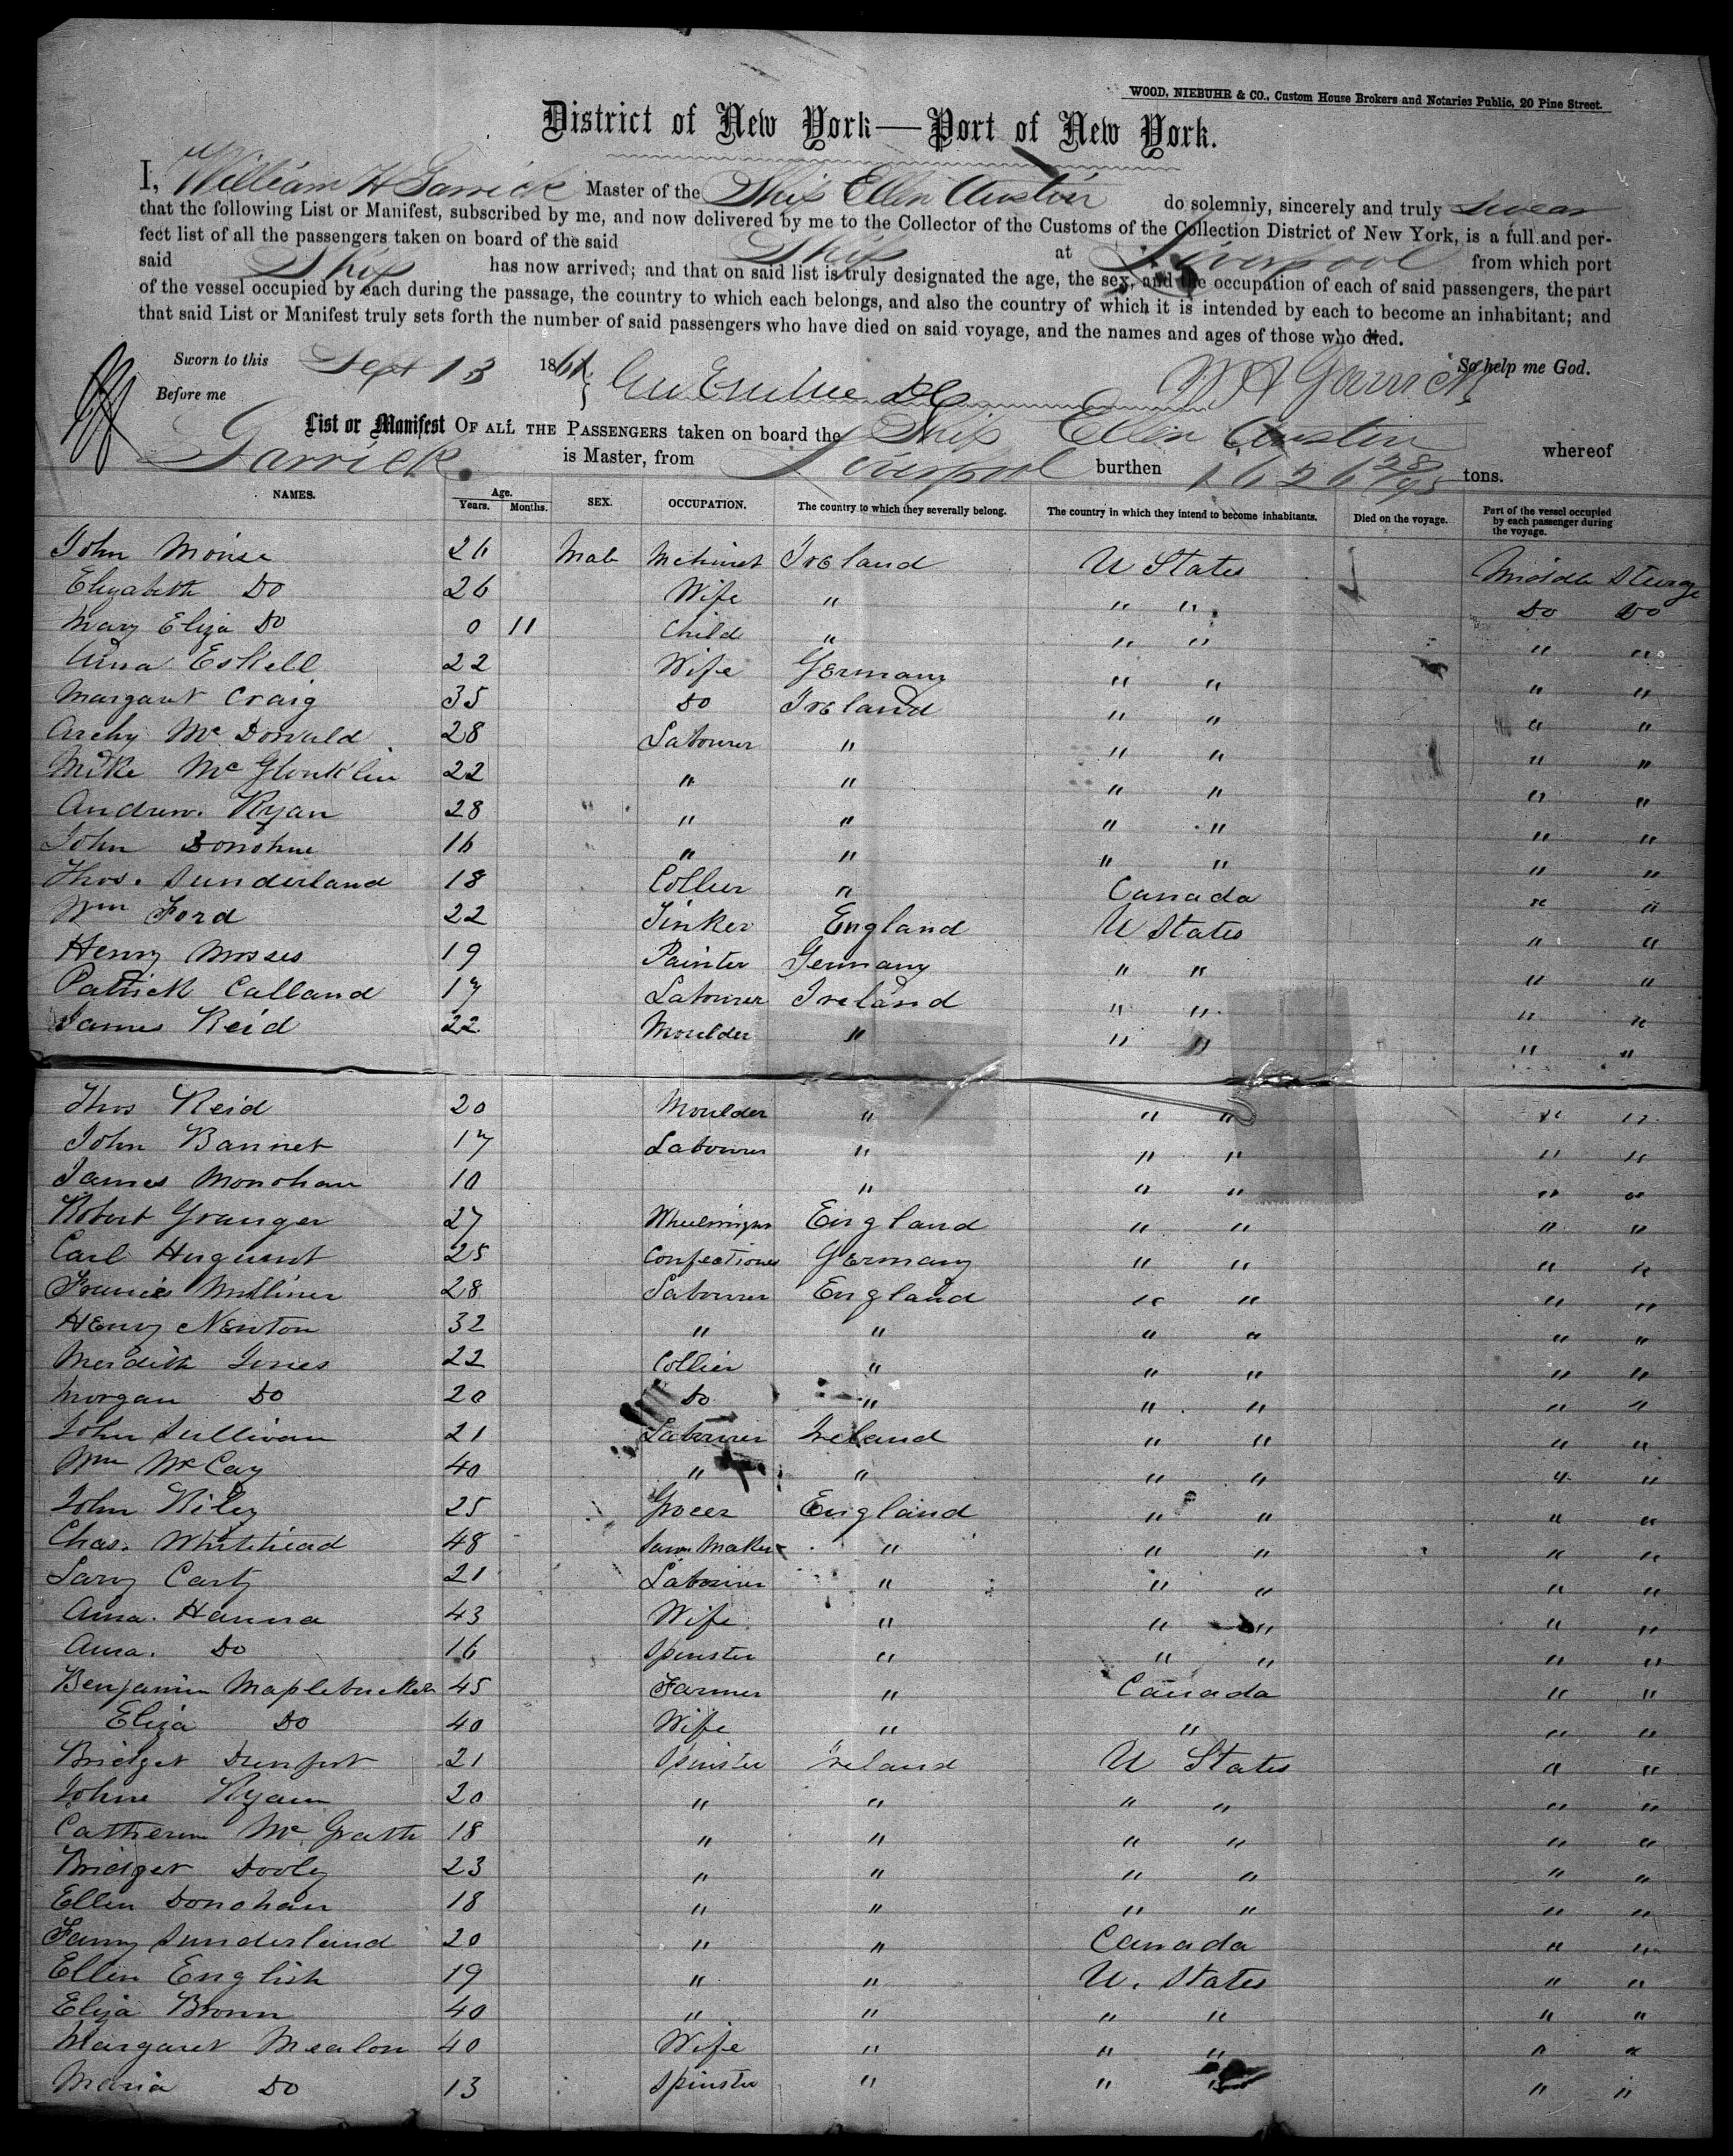 WOOD, NIEBUHR & CO., Custom House Brokers and Notaries Public, 20 Pine Street.
District of New York—Port of New York.
I, William H Garrick Master of the Ship Ellen Austin do solemnly, sincerely and truly swear
that the following List or Manifest, subscribed by me, and now delivered by me to the Collector of the Customs of the Collection District of New York, is a full and per-
fect list of all the passengers taken on board of the said Ship at Liverpool from which port
said Ship has now arrived; and that on said list is truly designated the age, the sex, and the occupation of each of said passengers, the part
of the vessel occupied by each during the passage, the country to which each belongs, and also the country of which it is intended by each to become an inhabitant; and
that said List or Manifest truly sets forth the number of said passengers who have died on said voyage, and the names and ages of those who died.
Sworn to this Sept 13 1861 So help me God.
Before me W H Garrick
List or Manifest OF ALL THE PASSENGERS taken on board the Ship Ellen Austin whereof
Garrick is Master, from Liverpool burthen 1626 28/95 tons.
NAMES. Age. Years. Months. SEX. OCCUPATION. The country to which they severally belong. The country in which they intend to become inhabitants. Died on the voyage. Part of the vessel occupied by each passenger during the voyage.
John 26 Male Ireland U States Middle Steerage
Elizabeth Do 26 Wife " " " Do Do
Mary Eliza Do 0 11 Child " " " " "
Anna Eskell 22 Wife Germany " " " "
Margaret Craig 35 Do Ireland " " " "
Archy McDonald 28 Labourer " " " " "
Mike 22 " " " " " "
Andrew Ryan 28 " " " " " "
John Donohue 16 " " " " " "
Thos. Sunderland 18 Collier " Canada " "
Wm Ford 22 Tinker England U States " "
Henry Mosses 19 Painter Germany " " " "
Patrick Calland 17 Labourer Ireland " " " "
James Reid 22 Moulder " " " " "
Thos Reid 20 Moulder " " " " "
John Bannet 17 Labourer " " " " "
James Monohan 10 " " " " "
Robert Granger 27 England " " " "
Carl 25 Confectioner Germany " " " "
Francis Milliner 28 Labourer England " " " "
Henry Newton 32 " " " " " "
Merdith Jones 22 Collier " " " " "
Morgan Do 20 Do " " " " "
John Sullivan 21 Labourer Ireland " " " "
Wm McCay 40 " " " " " "
John Riley 25 Grocer England " " " "
Chas. Whitehead 48 Maker " " " " "
Lary Carty 21 Labourer " " " " "
Anna. Hanna 43 Wife " " " " "
Anna. Do 16 Spinster " " " " "
Benjamin 45 Farmer " Canada " "
Eliza Do 40 Wife " " " "
Bridget 21 Spinster Ireland U States " "
Ryan 20 " " " " " "
Catherine McGrath 18 " " " " " "
Bridget Dooly 23 " " " " " "
Ellen Donohan 18 " " " " " "
Fanny Sunderland 20 " " Canada " "
Ellen English 19 " " U. States " "
Eliza Brown 40 " " " " " "
Margaret Mealon 40 Wife " " " " "
Maria Do 13 Spinster " " " " "